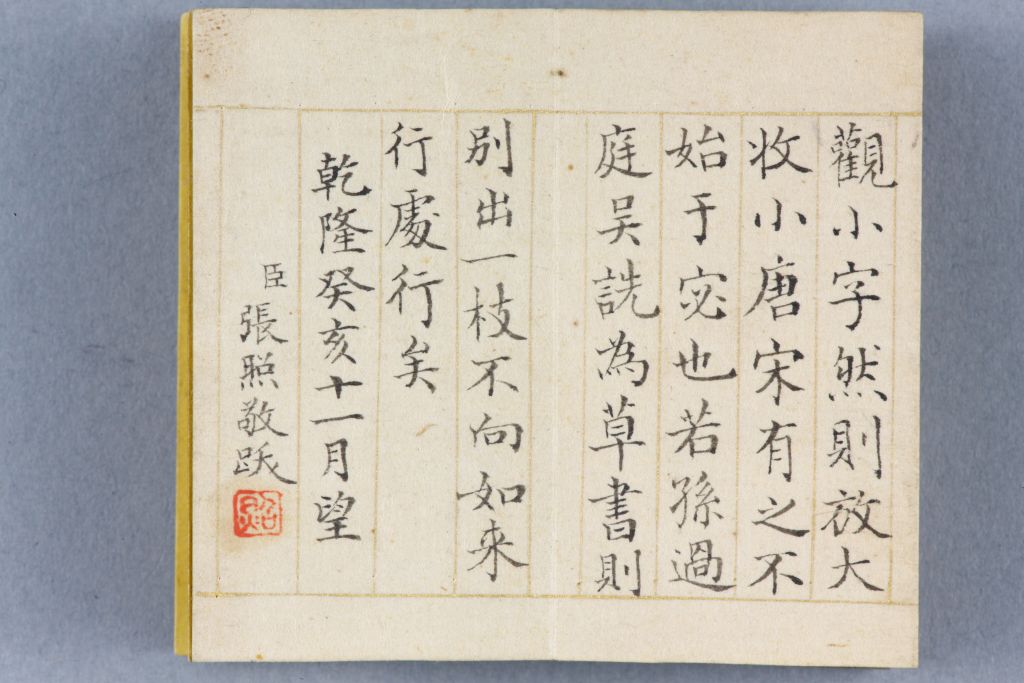 觀小字然則放大
收小唐宋有之不
始于宓也若孫過
庭吴説為草書則
別出一枝不向如来
行處行矣
乾隆癸亥十一月望
臣張照敬跋
照